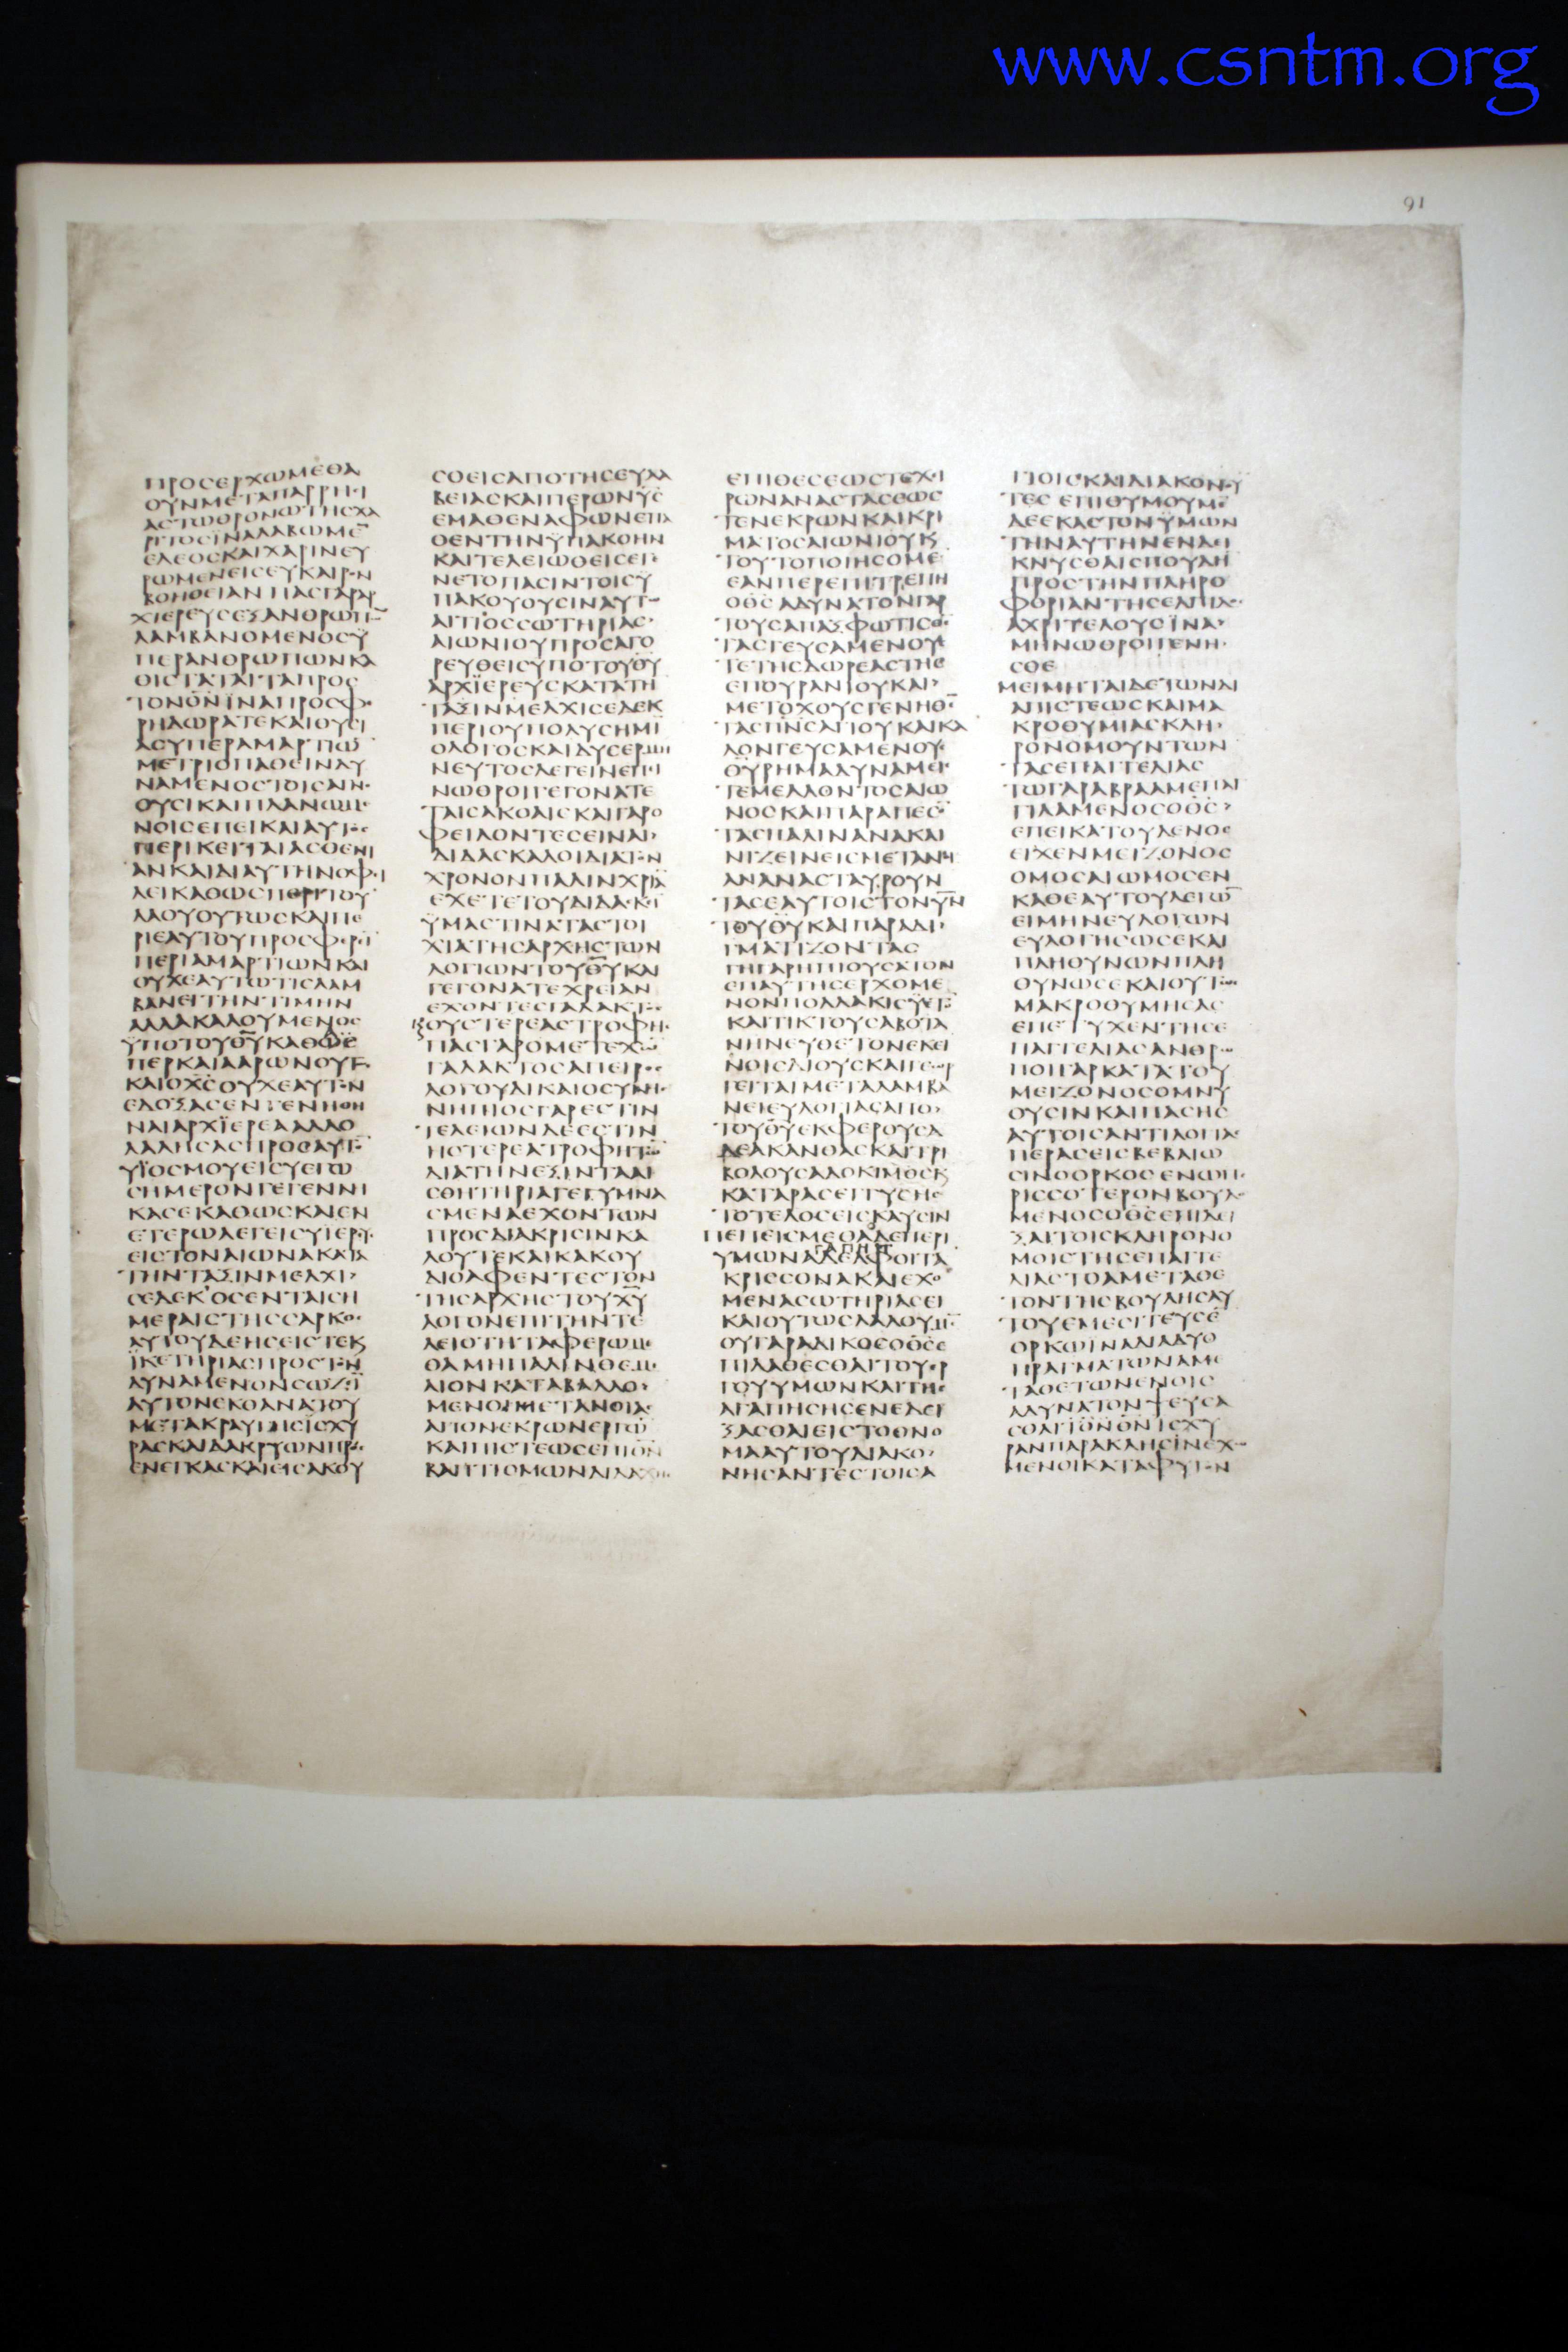 www.csntm.org
91
ΠΡΟϹΕΡΧΩΜΕΘΑ
ΟΥΝΜΕΤΑΠΑΡΡΗϹΙ
ΑϹΤΩΘΡΟΝΩΤΗϹΧΑ
ΡΙΤΟϹΪΝΑΛΑΒΩΜΕ̅
ΕΛΕΟϹΚΑΙΧΑΡΙΝΕΥ
ΡΩΜΕΝΕΙϹΕΥΚΑΙΡΟΝ
ΒΟΗΘΕΙΑΝΠΑϹΓΑΡΑΡ
ΧΙΕΡΕΥϹΕΞΑΝΘΡΩΠΩ̅
ΛΑΜΒΑΝΟΜΕΝΟϹΫ
ΠΕΡΑΝΘΡΩΠΩΝΚΑ
ΘΙϹΤΑΤΑΙΤΑΠΡΟϹ
ΤΟΝΘ̅Ν̅ΪΝΑΠΡΟϹΦΕ
ΡΗΔΩΡΑΤΕΚΑΙΘΥϹΙ
ΑϹΥΠΕΡΑΜΑΡΤΙΩ̅
ΜΕΤΡΙΟΠΑΘΕΙΝΔΥ
ΝΑΜΕΝΟϹΤΟΙϹΑΓΝΟ
ΟΥϹΙΚΑΙΠΛΑΝΩΜΕ
ΝΟΙϹΕΠΕΙΚΑΙΑΥΤΟϹ
ΠΕΡΙΚΕΙΤΑΙΑϹΘΕΝΙ
ΑΝΚΑΙΔΙΑΥΤΗΝΟΦΙ
ΛΕΙΚΑΘΩϹΠΕΡΙΤΟΥ
ΛΑΟΥΟΥΤΩϹΚΑΙΠΕ
ΡΙΕΑΥΤΟΥΠΡΟϹΦΕΡΙ̅
ΠΕΡΙΑΜΑΡΤΙΩΝΚΑΙ
ΟΥΧΕΑΥΤΩΤΙϹΛΑΜ
ΒΑΝΕΙΤΗΝΤΙΜΗΝ
ΑΛΛΑΚΑΛΟΥΜΕΝΟϹ
ΫΠΟΤΟΥΘ̅Υ̅ΚΑΘΩϹ
ΠΕΡΚΑΙΑΑΡΩΝΟΥΤΩ
ΚΑΙΟΧ̅Ϲ̅ΟΥΧΕΑΥΤΟΝ
ΕΔΟΞΑϹΕΝΓΕΝΗΘΗ
ΝΑΙΑΡΧΪΕΡΕΑΑΛΛΟ
ΛΑΛΗϹΑϹΠΡΟϹΑΥΤΟ̅
ΥΪΟϹΜΟΥΕΙϹΥΕΓΩ
ϹΗΜΕΡΟΝΓΕΓΕΝΝΗ
ΚΑϹΕΚΑΘΩϹΚΑΙΕΝ
ΕΤΕΡΩΛΕΓΕΙϹΥΪΕΡΕΥϹ
ΕΙϹΤΟΝΑΙΩΝΑΚΑΤΑ
ΤΗΝΤΑΞΙΝΜΕΛΧΙ
ϹΕΔΕΚΌϹΕΝΤΑΙϹΗ
ΜΕΡΑΙϹΤΗϹϹΑΡΚΟϹ
ΑΥΤΟΥΔΕΗϹΕΙϹΤΕΚϚ
ΪΚΕΤΗΡΙΑϹΠΡΟϹΤΟΝ
ΔΥΝΑΜΕΝΟΝϹΩΖΙ̅
ΑΥΤΟΝΕΚΘΑΝΑΤΟΥ
ΜΕΤΑΚΡΑΥΓΗϹΪϹΧΥ
ΡΑϹΚΑΙΔΑΚΡΥΩΝΠΡΟϹ
ΕΝΕΓΚΑϹΚΑΙΕΙϹΑΚΟΥ
ϹΘΕΙϹΑΠΟΤΗϹΕΥΛΑ
ΒΕΙΑϹΚΑΙΠΕΡΩΝΥ̅Ϲ̅
ΕΜΑΘΕΝΑΦΩΝΕΠΑ
ΘΕΝΤΗΝΫΠΑΚΟΗΝ
ΚΑΙΤΕΛΕΙΩΘΕΙϹΕΓΕ
ΝΕΤΟΠΑϹΙΝΤΟΙϹΥ
ΠΑΚΟΥΟΥϹΙΝΑΥΤΩ
ΑΙΤΙΟϹϹΩΤΗΡΙΑϹ
ΑΙΩΝΙΟΥΠΡΟϹΑΓΟ
ΡΕΥΘΕΙϹΥΠΟΤΟΥΘ̅Υ̅
ΑΡΧΪΕΡΕΥϹΚΑΤΑΤΗ
ΤΑΞΙΝΜΕΛΧΙϹΕΔΕΚ
ΠΕΡΙΟΥΠΟΛΥϹΗΜΙ̅
ΟΛΟΓΟϹΚΑΙΔΥϹΕΡΜΗ
ΝΕΥΤΟϹΛΕΓΕΙΝΕΠΕΙ
ΝΩΘΡΟΙΓΕΓΟΝΑΤΕ
ΤΑΙϹΑΚΟΑΙϹΚΑΙΓΑΡΟ
ΦΕΙΛΟΝΤΕϹΕΙΝΑΙ
ΔΙΔΑϹΚΑΛΟΙΔΙΑΤΟΝ
ΧΡΟΝΟΝΠΑΛΙΝΧΡΙΑ̅
ΕΧΕΤΕΤΟΥΔΙΔΑϹΚΙ̅
ΫΜΑϹΤΙΝΑΤΑϹΤΟΙ
ΧΙΑΤΗϹΑΡΧΗϹΤΩΝ
ΛΟΓΙΩΝΤΟΥΘ̅Υ̅ΚΑΙ
ΓΕΓΟΝΑΤΕΧΡΕΙΑΝ
ΕΧΟΝΤΕϹΓΑΛΑΚΤΟϹ
ϗΟΥϹΤΕΡΕΑϹΤΡΟΦΗϹ
ΠΑϹΓΑΡΟΜΕΤΕΧΩ̅
ΓΑΛΑΚΤΟϹΑΠΕΙΡΟϹ
ΛΟΓΟΥΔΙΚΑΙΟϹΥΝΗϹ
ΝΗΠΙΟϹΓΑΡΕϹΤΙΝ
ΤΕΛΕΙΩΝΔΕΕϹΤΙΝ
ΗϹΤΕΡΕΑΤΡΟΦΗΤΩ̅
ΔΙΑΤΗΝΕΞΙΝΤΑΑΙ
ϹΘΗΤΗΡΙΑΓΕΓΥΜΝΑ
ϹΜΕΝΑΕΧΟΝΤΩΝ
ΠΡΟϹΔΙΑΚΡΙϹΙΝΚΑ
ΛΟΥΤΕΚΑΙΚΑΚΟΥ
ΔΙΟΑΦΕΝΤΕϹΤΟΝ
ΤΗϹΑΡΧΗϹΤΟΥΧ̅Υ̅
ΛΟΓΟΝΕΠΙΤΗΝΤΕ
ΛΕΙΟΤΗΤΑΦΕΡΩΜΕ
ΘΑΜΗΠΑΛΙΝΘΕΜΕ
ΛΙΟΝΚΑΤΑΒΑΛΛΟ
ΜΕΝΟΙΜΕΤΑΝΟΙΑϹ
ΑΠΟΝΕΚΡΩΝΕΡΓΩ̅
ΚΑΙΠΙϹΤΕΩϹΕΠΙΘ̅Ν̅
ΒΑΠΤΙϹΜΩΝΔΙΔΑΧΗϹ
ΕΠΙΘΕϹΕΩϹΤΕΧΙ
ΡΩΝΑΝΑϹΤΑϹΕΩϹ
ΤΕΝΕΚΡΩΝΚΑΙΚΡΙ
ΜΑΤΟϹΑΙΩΝΙΟΥϗ
ΤΟΥΤΟΠΟΙΗϹΟΜΕ
ΕΑΝΠΕΡΕΠΙΤΡΕΠΗ
ΟΘ̅Ϲ̅ΑΔΥΝΑΤΟΝΓΑΡ
ΤΟΥϹΑΠΑΞΦΩΤΙϹΘΕ̅
ΤΑϹΓΕΥϹΑΜΕΝΟΥϹ
ΤΕΤΗϹΔΩΡΕΑϹΤΗϹ
ΕΠΟΥΡΑΝΙΟΥΚΑΙ
ΜΕΤΟΧΟΥϹΓΕΝΗΘΕ̅
ΤΑϹΠ̅Ν̅Ϲ̅ΑΓΙΟΥΚΑΙΚΑ
ΛΟΝΓΕΥϹΑΜΕΝΟΥϹ
Θ̅Υ̅ΡΗΜΑΔΥΝΑΜΕΙϹ
ΤΕΜΕΛΛΟΝΤΟϹΑΙΩ
ΝΟϹΚΑΙΠΑΡΑΠΕϹΟ̅
ΤΑϹΠΑΛΙΝΑΝΑΚΑΙ
ΝΙΖΕΙΝΕΙϹΜΕΤΑΝΟΙ
ΑΝΑΝΑϹΤΑΥΡΟΥΝ
ΤΑϹΕΑΥΤΟΙϹΤΟΝΥ̅Ν̅
ΤΟΥΘ̅Υ̅ΚΑΙΠΑΡΑΔΙ
ΓΜΑΤΙΖΟΝΤΑϹ
ΓΗΓΑΡΗΠΙΟΥϹΑΤΟΝ
ΕΠΑΥΤΗϹΕΡΧΟΜΕ
ΝΟΝΠΟΛΛΑΚΙϹΫΕΤΟ̅
ΚΑΙΤΙΚΤΟΥϹΑΒΟΤΑ
ΝΗΝΕΥΘΕΤΟΝΕΚΕΙ
ΝΟΙϹΔΙΟΥϹΚΑΙΓΕΩΡ
ΓΕΙΤΑΙΜΕΤΑΛΑΜΒΑ
ΝΕΙΕΥΛΟΓΙΑϹΑΠΟ
ΤΟΥΘ̅Υ̅ΕΚΦΕΡΟΥϹΑ
ΔΕΑΚΑΝΘΑϹΚΑΙΤΡΙ
ΒΟΛΟΥϹΑΔΟΚΙΜΟϹϗ
ΚΑΤΑΡΑϹΕΓΓΥϹΗϹ
ΤΟΤΕΛΟϹΕΙϹΚΑΥϹΙΝ
ΠΕΠΕΙϹΜΕΘΑΔΕΠΕΡΙ
ΑΓΑΠΗΤΟΙ
ΥΜΩΝΑΔΕΛΦΟΙΤΑ
ΚΡΙϹϹΟΝΑΚΑΙΕΧΟ
ΜΕΝΑϹΩΤΗΡΙΑϹΕΙ
ΚΑΙΟΥΤΩϹΛΑΛΟΥΜΕ̅
ΟΥΓΑΡΑΔΙΚΟϹΟΘ̅Ϲ̅Ε
ΠΙΛΑΘΕϹΘΑΙΤΟΥΕΡ
ΓΟΥΥΜΩΝΚΑΙΤΗϹ
ΑΓΑΠΗϹΗϹΕΝΕΔΕΙ
ΞΑϹΘΑΙΕΙϹΤΟΟΝΟ
ΜΑΑΥΤΟΥΔΙΑΚΟ
ΝΗϹΑΝΤΕϹΤΟΙϹΑ
ΓΙΟΙϹΚΑΙΔΙΑΚΟΝΟΥ̅
ΤΕϹΕΠΙΘΥΜΟΥΜΕ̅
ΔΕΕΚΑϹΤΟΝΫΜΩΝ
ΤΗΝΑΥΤΗΝΕΝΔΙ
ΚΝΥϹΘΑΙϹΠΟΥΔΗ
ΠΡΟϹΤΗΝΠΛΗΡΟ
ΦΟΡΙΑΝΤΗϹΕΛΠΙΔΟϹ
ΑΧΡΙΤΕΛΟΥϹΪΝΑ
ΜΗΝΩΘΡΟΙΓΕΝΗ
ϹΘΕ
ΜΕΙΜΗΤΑΙΔΕΤΩΝΔΙ
ΑΠΙϹΤΕΩϹΚΑΙΜΑ
ΚΡΟΘΥΜΙΑϹΚΛΗ
ΡΟΝΟΜΟΥΝΤΩΝ
ΤΑϹΕΠΑΓΓΕΛΙΑϹ
ΤΩΓΑΡΑΒΡΑΑΜΕΠΑΓ
ΓΙΛΑΜΕΝΟϹΟΘ̅Ϲ̅
ΕΠΕΙΚΑΤΟΥΔΕΝΟϹ
ΕΙΧΕΝΜΕΙΖΟΝΟϹ
ΟΜΟϹΑΙΩΜΟϹΕΝ
ΚΑΘΕΑΥΤΟΥΛΕΓΩ̅
ΕΙΜΗΝΕΥΛΟΓΩΝ
ΕΥΛΟΓΗϹΩϹΕΚΑΙ
ΠΛΗΘΥΝΩΝΠΛΗ
ΘΥΝΩϹΕΚΑΙΟΥΤΩϹ
ΜΑΚΡΟΘΥΜΗϹΑϹ
ΕΠΕΤΥΧΕΝΤΗϹΕ
ΠΑΓΓΕΛΙΑϹΑΝΘΡΩ
ΠΟΙΓΑΡΚΑΤΑΤΟΥ
ΜΕΙΖΟΝΟϹΟΜΝΥ
ΟΥϹΙΝΚΑΙΠΑϹΗϹ
ΑΥΤΟΙϹΑΝΤΙΛΟΓΙΑϹ
ΠΕΡΑϹΕΙϹΒΕΒΑΙΩ
ϹΙΝΟΟΡΚΟϹΕΝΩΠΕ
ΡΙϹϹΟΤΕΡΟΝΒΟΥΛΟ
ΜΕΝΟϹΟΘ̅Ϲ̅ΕΠΙΔΕΙ
ΞΑΙΤΟΙϹΚΛΗΡΟΝΟ
ΜΟΙϹΤΗϹΕΠΑΓΓΕ
ΛΙΑϹΤΟΑΜΕΤΑΘΕ
ΤΟΝΤΗϹΒΟΥΛΗϹΑΥ
ΤΟΥΕΜΕϹΙΤΕΥϹΕ̅
ΟΡΚΩΪΝΑΔΙΑΔΥΟ
ΠΡΑΓΜΑΤΩΝΑΜΕ
ΤΑΘΕΤΩΝΕΝΟΙϹ
ΑΔΥΝΑΤΟΝΨΕΥϹΑ
ϹΘΑΙΤΟΝΘ̅Ν̅ΙϹΧΥ
ΡΑΝΠΑΡΑΚΛΗϹΙΝΕΧΩ
ΜΕΝΟΙΚΑΤΑΦΥΓΟΝ